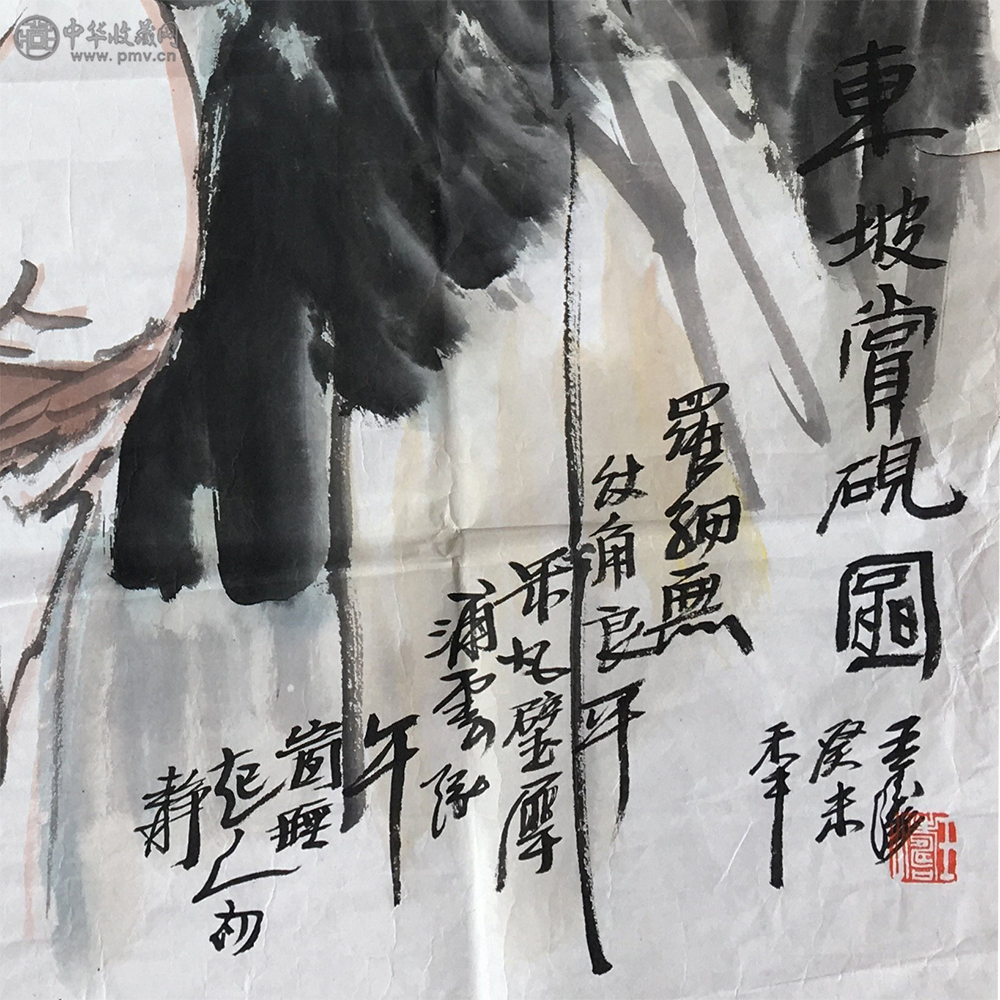 東坡賞硯圖
癸未
羅細無
角良平
丸璧犀
浦雲
午
窗睡
起人初
靜
中华收藏网
www.pmv.cn